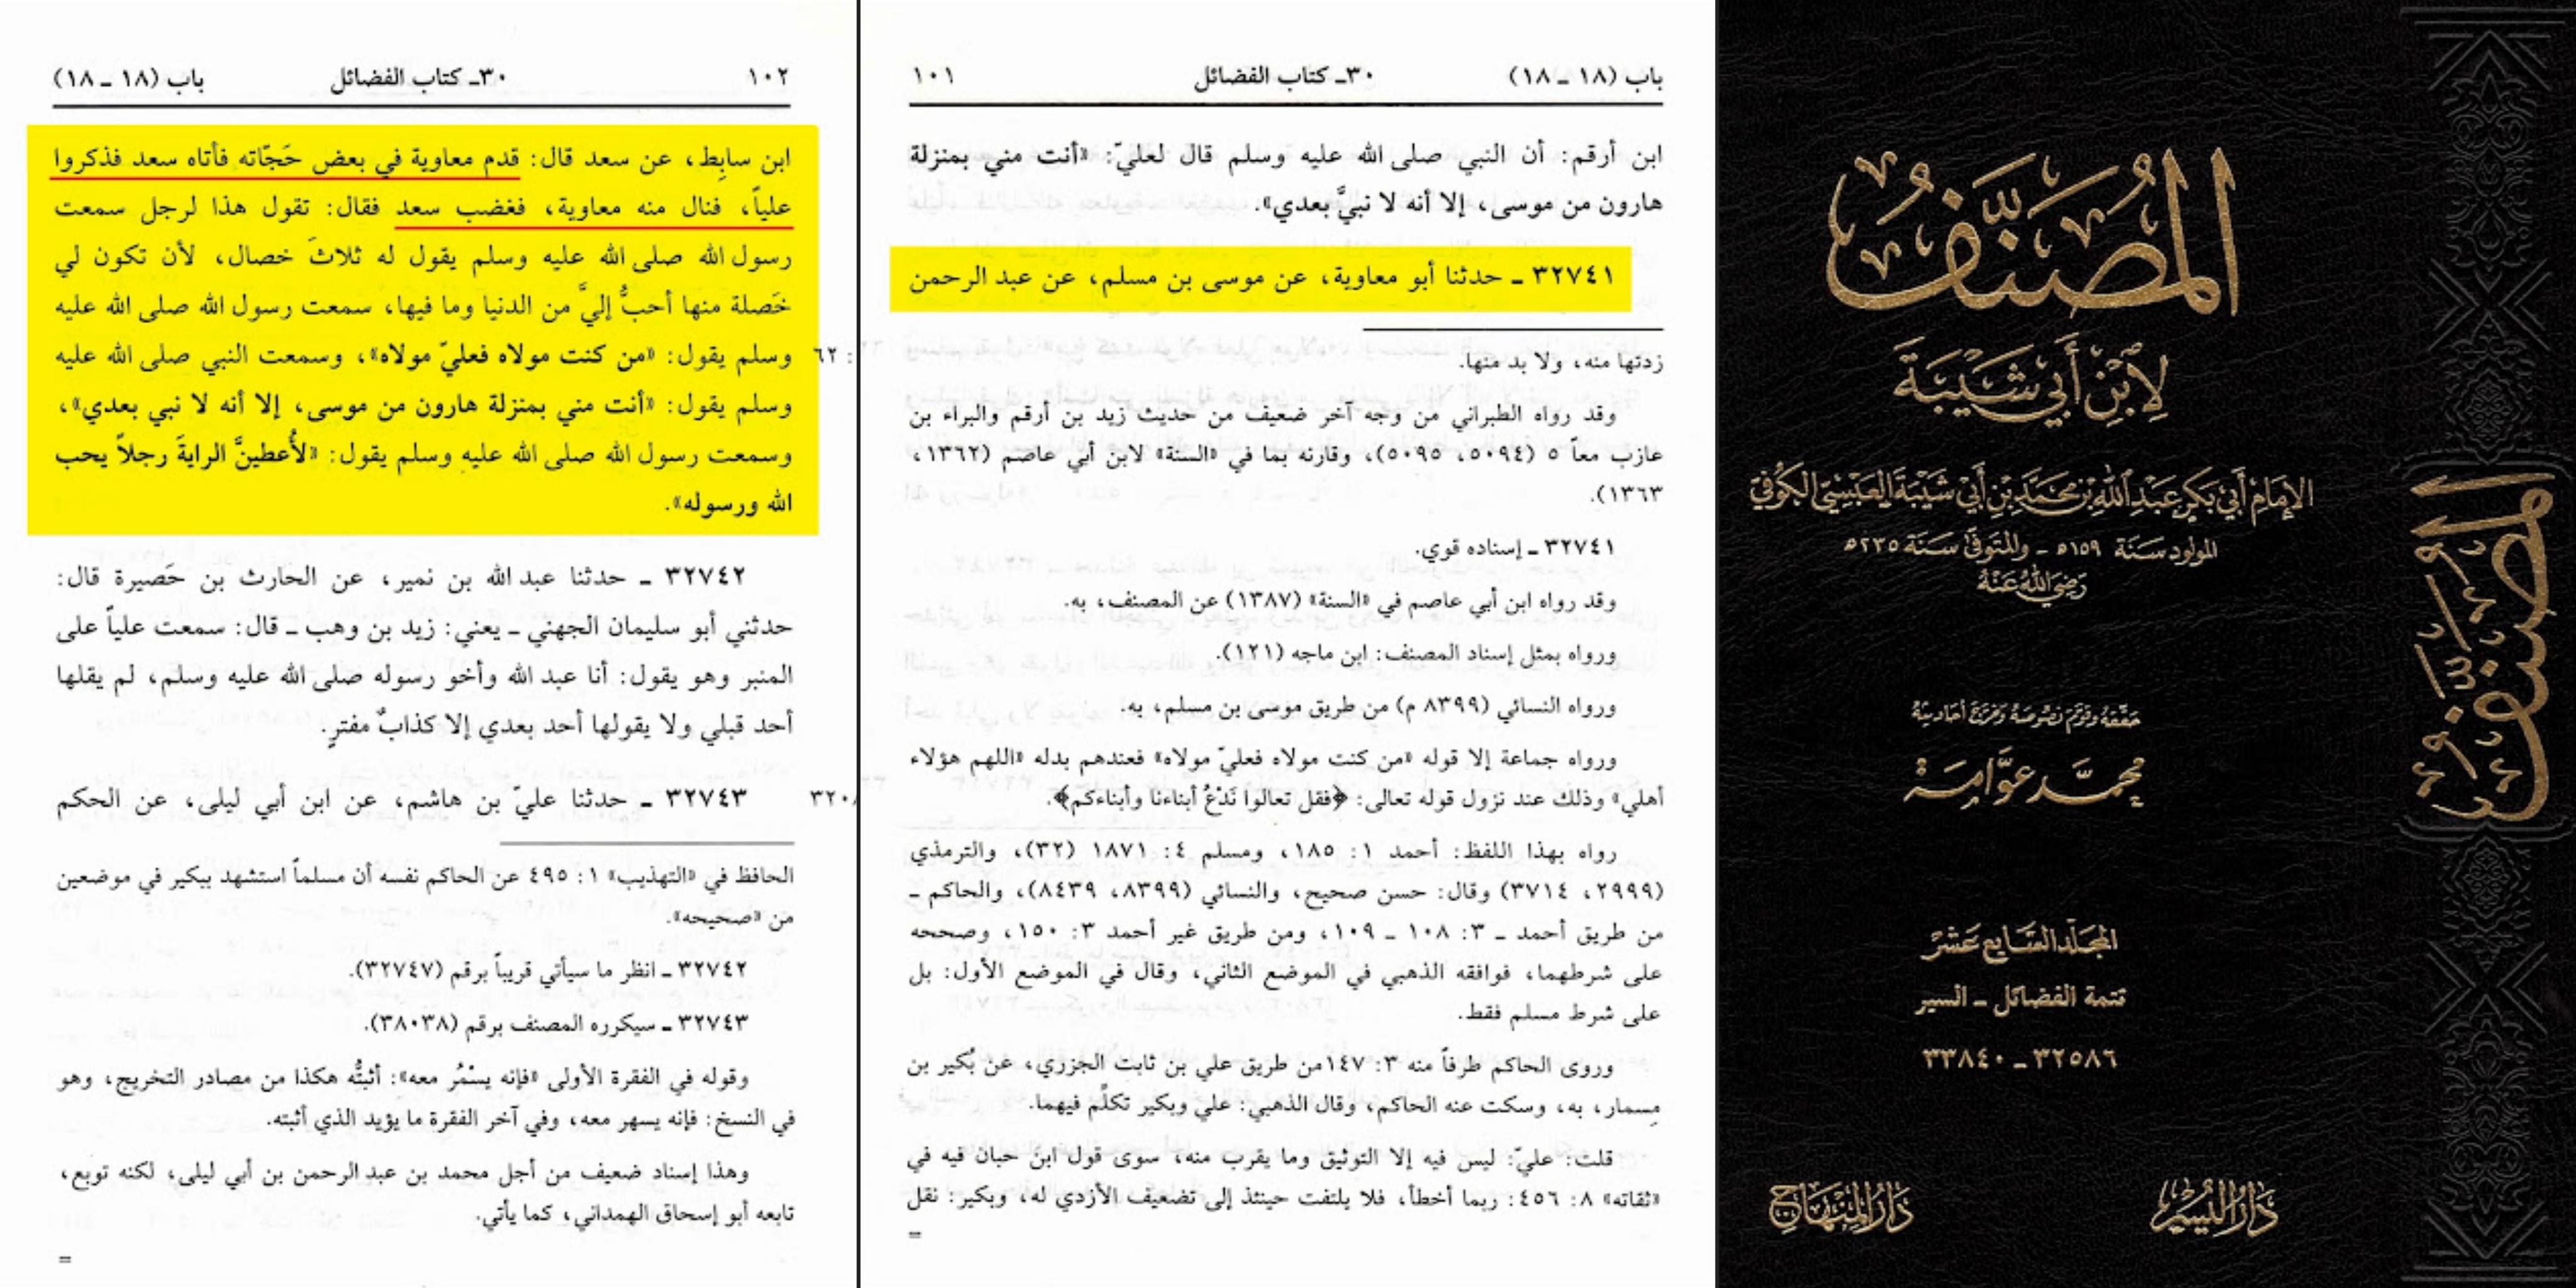 باب (١٨ ـ ١٨)
٣٠ـ كتاب الفضائل
١٠١
ابن أرقم: أن النبي صلى الله عليه وسلم قال لعليّ: «أنت مني بمنزلة
هارون من موسى، إلا أنه لا نبيَّ بعدي».
٣٢٧٤١ ـ حدثنا أبو معاوية، عن موسى بن مسلم، عن عبد الرحمن
زدتها منه، ولا بد منها.
وقد رواه الطبراني من وجه آخر ضعيف من حديث زيد بن أرقم والبراء بن
عازب معاً ٥ (٥٠٩٤، ٥٠٩٥)، وقارنه بما في «السنة» لابن أبي عاصم (١٣٦٢،
١٣٦٣).
٣٢٧٤١ ـ إسناده قوي.
وقد رواه ابن أبي عاصم في «السنة» (١٣٨٧) عن المصنف، به.
ورواه بمثل إسناد المصنف: ابن ماجه (١٢١).
ورواه النسائي (٨٣٩٩ م) من طريق موسى بن مسلم، به.
ورواه جماعة إلا قوله «من كنت مولاه فعليّ مولاه» فعندهم بدله «اللهم هؤلاء
أهلي» وذلك عند نزول قوله تعالى: ﴿فقل تعالوا نَدْعُ أبناءنا وأبناءكم﴾.
رواه بهذا اللفظ: أحمد ١: ١٨٥، ومسلم ٤: ١٨٧١ (٣٢)، والترمذي
(٢٩٩٩، ٣٧١٤) وقال: حسن صحيح، والنسائي (٨٣٩٩، ٨٤٣٩)، والحاكم ـ
من طريق أحمد ـ ٣: ١٠٨ ـ ١٠٩، ومن طريق غير أحمد ٣: ١٥٠، وصححه
على شرطهما، فوافقه الذهبي في الموضع الثاني، وقال في الموضع الأول: بل
على شرط مسلم فقط.
وروى الحاكم طرفاً منه ٣: ١٤٧من طريق علي بن ثابت الجزري، عن بُكير بن
مِسمار، به، وسكت عنه الحاكم، وقال الذهبي: علي وبكير تكلَّم فيهما.
قلت: عليّ: ليس فيه إلا التوثيق وما يقرب منه، سوى قول ابن حبان فيه في
«ثقاته» ٨: ٤٥٦: ربما أخطأ، فلا يلتفت حينئذ إلى تضعيف الأزدي له، وبكير: نقل
=
١٠٢
٣٠ـ كتاب الفضائل
باب (١٨ ـ ١٨)
ابن سابِط، عن سعد قال: قدم معاوية في بعض حَجّاته فأتاه سعد فذكروا
علياً، فنال منه معاوية، فغضب سعد فقال: تقول هذا لرجل سمعت
رسول الله صلى الله عليه وسلم يقول له ثلاثَ خصال، لأن تكون لي
خَصلة منها أحبُّ إليَّ من الدنيا وما فيها، سمعت رسول الله صلى الله عليه
وسلم يقول: «من كنت مولاه فعليّ مولاه»، وسمعت النبي صلى الله عليه
وسلم يقول: «أنت مني بمنزلة هارون من موسى، إلا أنه لا نبي بعدي»،
وسمعت رسول الله صلى الله عليه وسلم يقول: «لأُعطينَّ الرايةَ رجلاً يحب
الله ورسوله».
٣٢٧٤٢ ـ حدثنا عبد الله بن نمير، عن الحارث بن حَصيرة قال:
حدثني أبو سليمان الجهني ـ يعني: زيد بن وهب ـ قال: سمعت علياً على
المنبر وهو يقول: أنا عبد الله وأخو رسوله صلى الله عليه وسلم، لم يقلها
أحد قبلي ولا يقولها أحد بعدي إلا كذابٌ مفترٍ.
٣٢٧٤٣ ـ حدثنا عليّ بن هاشم، عن ابن أبي ليلى، عن الحكم
الحافظ في «التهذيب» ١: ٤٩٥ عن الحاكم نفسه أن مسلماً استشهد ببكير في موضعين
من «صحيحه».
٣٢٧٤٢ ـ انظر ما سيأتي قريباً برقم (٣٢٧٤٧).
٣٢٧٤٣ ـ سيكرره المصنف برقم (٣٨٠٣٨).
وقوله في الفقرة الأولى «فإنه يسْمُر معه»: أثبتُّه هكذا من مصادر التخريج، وهو
في النسخ: فإنه يسهر معه، وفي آخر الفقرة ما يؤيد الذي أثبته.
وهذا إسناد ضعيف من أجل محمد بن عبد الرحمن بن أبي ليلى، لكنه توبع،
تابعه أبو إسحاق الهمداني، كما يأتي.
=
المُصَنَّف
لِابْنِ أَبِي شَيْبَةَ
الإمَام أَبي بَكر عَبْد اللَّه بْن مُحَمَّد بْن أَبي شَيْبَة العَبْسِيّ الكوفيّ
المولود سَنَة ١٥٩هـ ـ والمتوفى سَنَة ٢٣٥هـ
رَضِيَ اللهُ عَنْهُ
حَقَّقَهُ وَقَوَّمَ نصُوصَهُ وَخَرَّجَ أَحَادِيثَهُ
محمَّد عوَّامة
المجَلد السَّابع عَشَر
تتمة الفضائل ـ السير
٣٢٥٨٦ ـ ٣٣٨٤٠
دَارُ اليُسر
دَارُ المِنْهَاج
المُصَنَّف